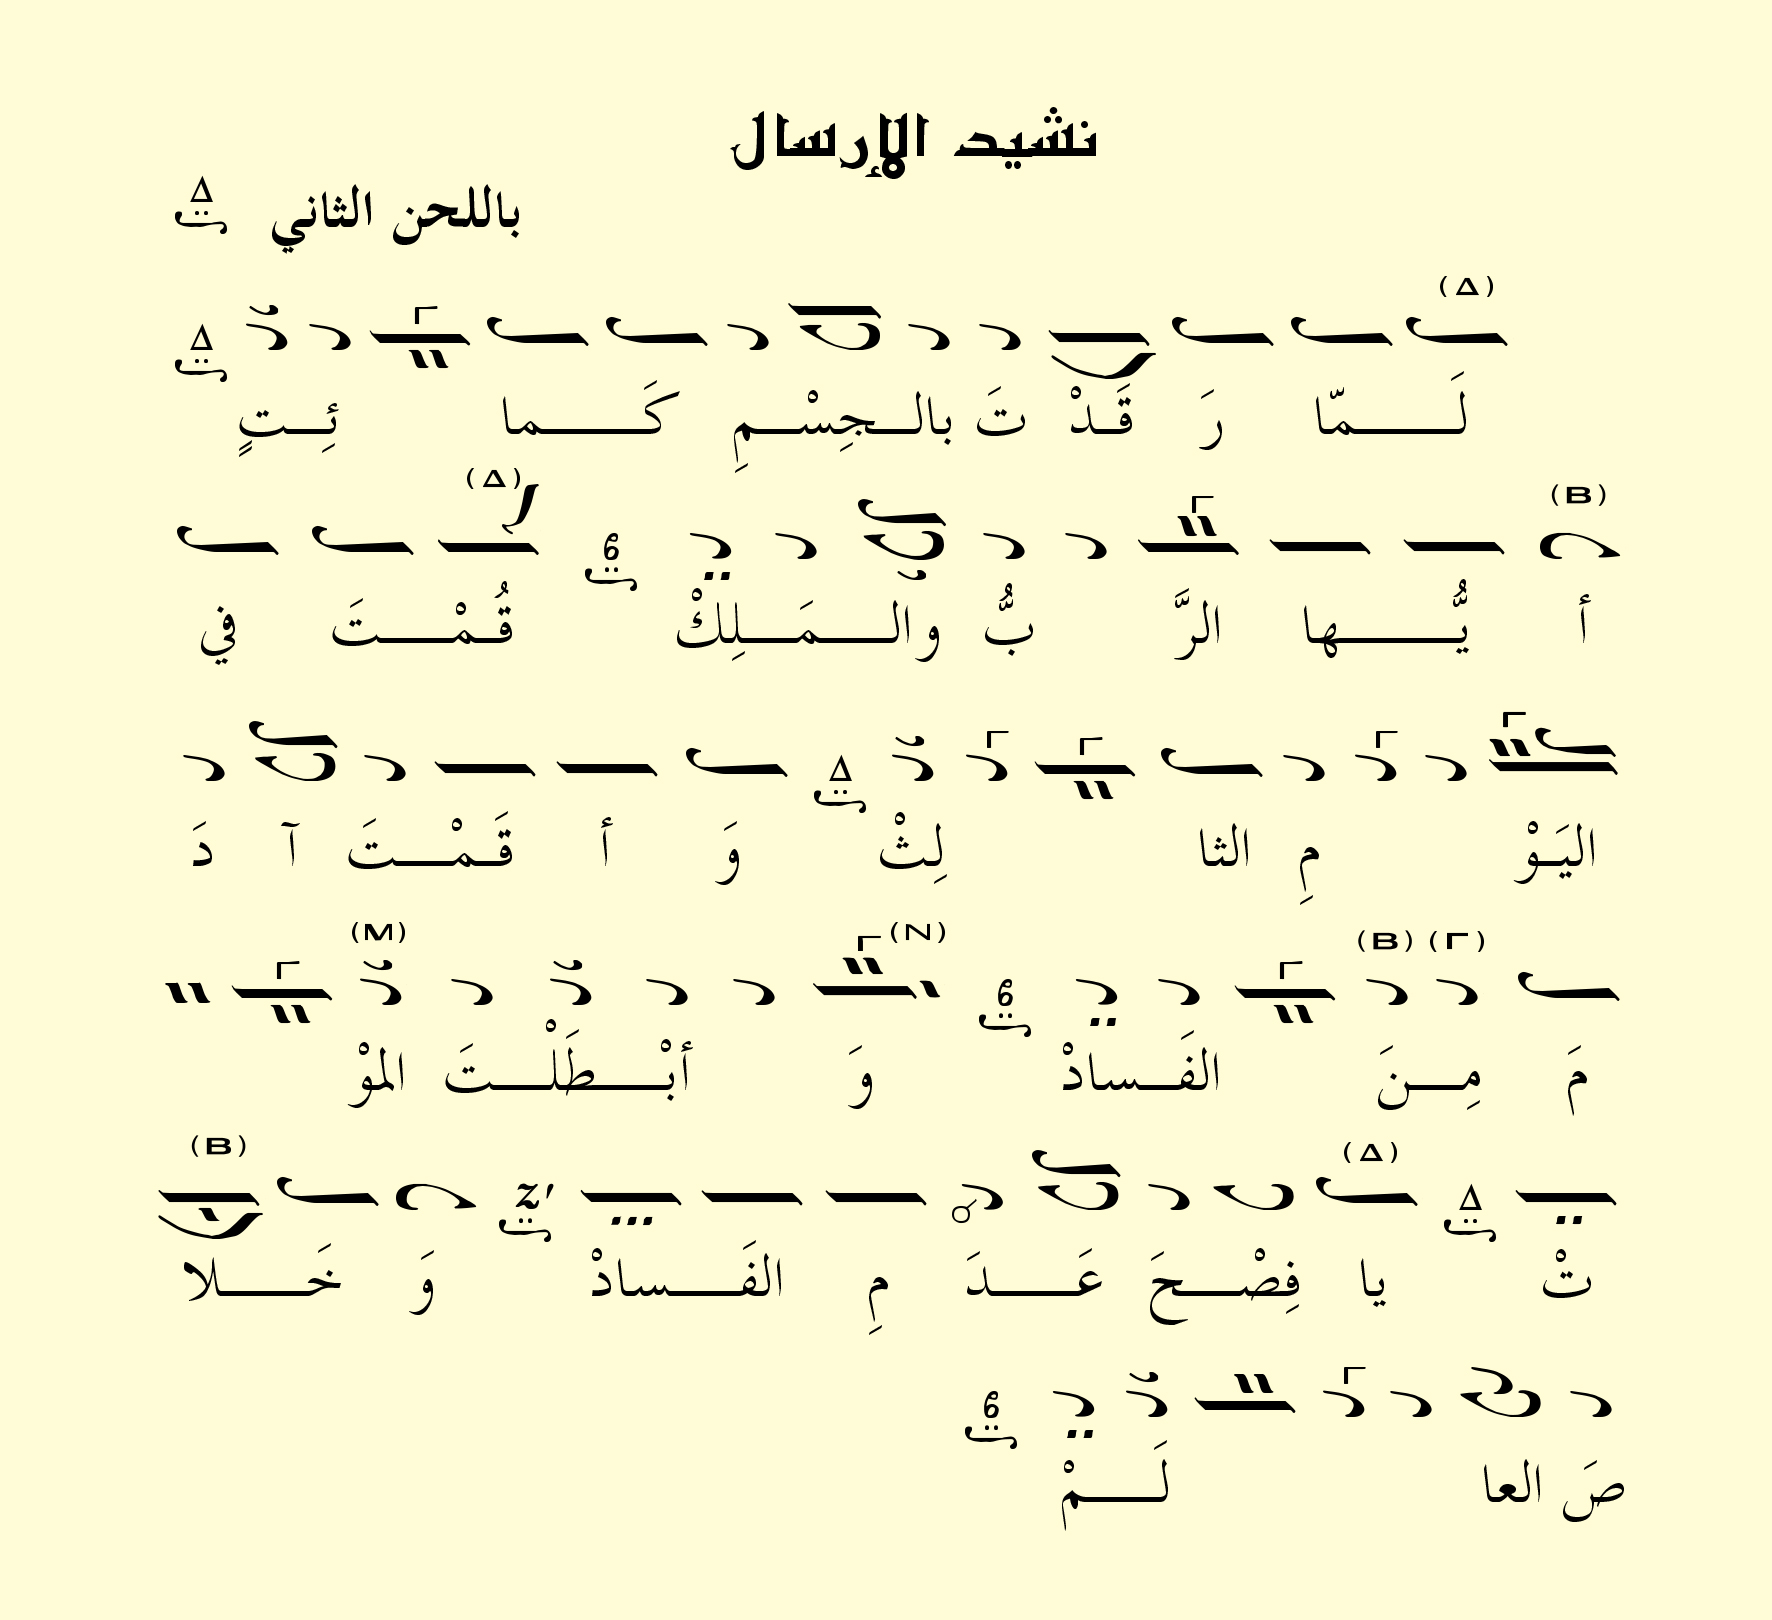 نشيد الإرسال
باللحن الثاني Δ
(Δ)
لَـمّا رَ قَـدْ تَ بالـجِسْـمِ كَـما ئِـتٍ Δ
(B) (Δ)
أ يُّـها الرَّ بُّ والـمَـلِكْ قُـمْـتَ في
اليَـوْ مِ الثا لِثْ Δ وَ أ قَـمْـتَ آ دَ
(Γ) (B) (N) (M)
مَ مِـنَ الفَـسادْ وَ أبْـطَلْـتَ الموْ
(Δ) (B)
تْ Δ يا فِصْـحَ عَـدَ مِ الفَـسادْ z′ وَ خَـلا
صَ العا لَـمْ